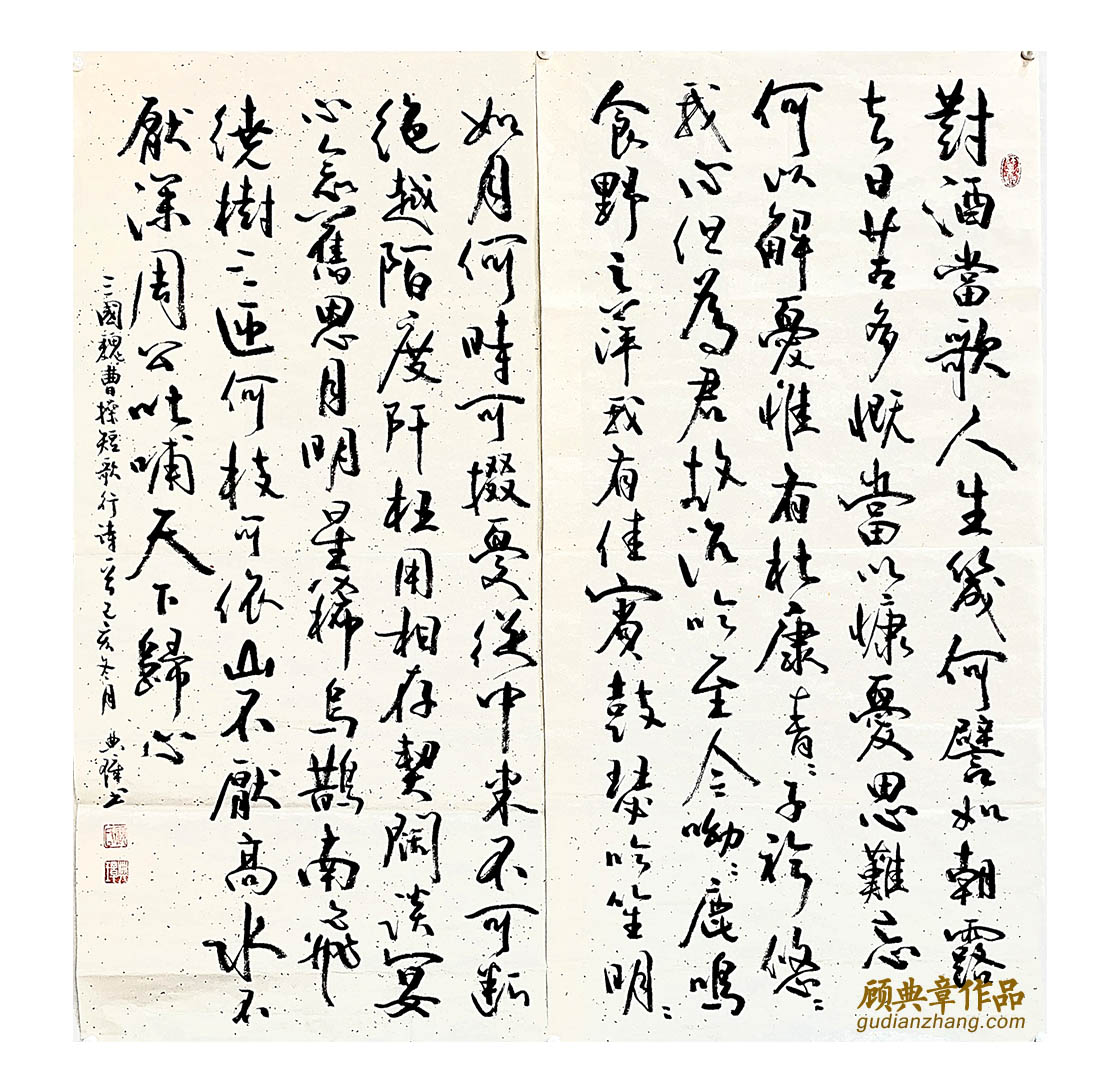 對酒當歌人生幾何譬如朝露
去日苦多慨當以慷憂思難忘
何以解憂惟有杜康青〻子衿悠〻
我心但為君故沉吟至今呦〻鹿鳴
食野之苹我有佳賓鼓瑟吹笙明〻
如月何時可掇憂從中來不可斷
絕越陌度阡枉用相存契闊談宴
心念舊恩月明星稀烏鵲南飛
繞樹三匝何枝可依山不厭高水不
厭深周公吐哺天下歸心
三國魏曹操短歌行詩一首己亥冬月 典璋书
顾典章作品
gudianzhang.com